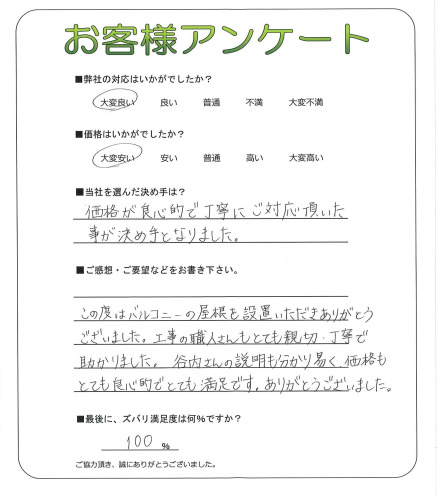 お客様アンケート
■弊社の対応はいかがでしたか？
大変良い 良い 普通 不満 大変不満
■価格はいかがでしたか？
大変安い 安い 普通 高い 大変高い
■当社を選んだ決め手は？
価格が良心的で丁寧にご対応頂いた
事が決め手となりました。
■ご感想・ご要望などをお書き下さい。
この度はバルコニーの屋根を設置いただきありがとう
ございました。工事の職人さんもとても親切・丁寧で
助かりました。谷内さんの説明も分かり易く、価格も
とても良心的でとても満足です。ありがとうございました。
■最後に、ズバリ満足度は何%ですか？
100 %
ご協力頂き、誠にありがとうございました。